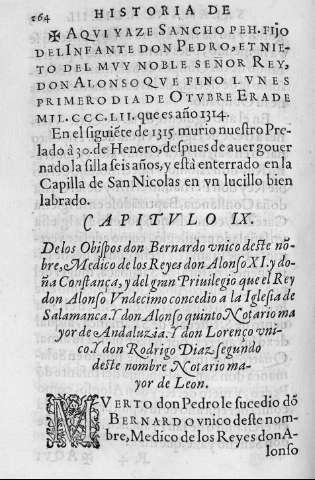 264 HISTORIA DE
✠ AQVI YAZE SANCHO PEH. Fijo
DEL INFANTE DON PEDRO, ET NIE-
TO DEL MVY NOBLE SEÑOR REY,
DON ALONSO QVE FINO LVNES
PRIMERO DIA DE OTVBRE ERA DE
MIL. CCC. LII. que es año 1314.
En el siguiẽte de 1315 murio nuestro Pre-
lado à 30. de Henero, despues de auer gouer
nado la silla seis años, y està enterrado en la
Capilla de San Nicolas en vn lucillo bien
labrado.
CAPITVLO IX.
De los Obispos don Bernardo vnico deste nõ-
bre, Medico de los Reyes don Alonso XI. y do-
ña Constança, y del gran Priuilegio que el Rey
don Alonso Vndecimo concedio a la Iglesia de
Salamanca. Y don Alonso quinto Notario ma
yor de Andaluzia. Y don Lorenço vni-
co. Y don Rodrigo Diaz segundo
deste nombre Notario ma-
yor de Leon.
MVERTO don Pedro le sucedio dõ
BERNARDO vnico deste nom-
bre, Medico de los Reyes don A-
lonso